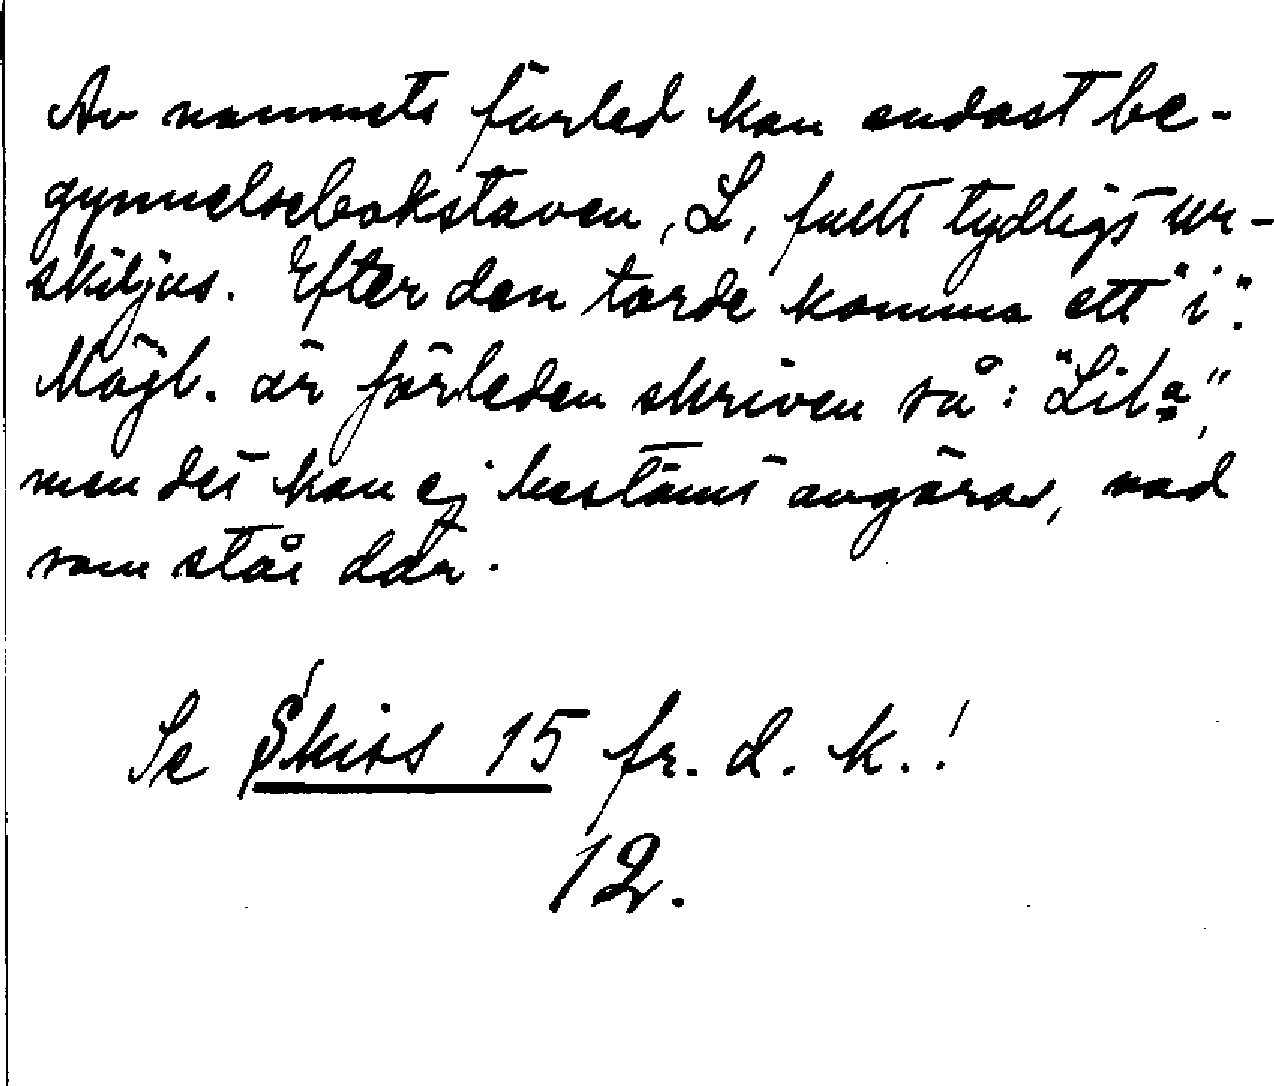 Av namnets förled kan endast be-
gynnelsebokstaven, L, fullt tydligt ur-
skiljas. Efter den torde komma ett "i".
Möjl. är förleden skriven så: "Lila",
men det kan ej bestämt avgöras, vad
som står där.
Se Skiss 15 fr. d. k.!
12.